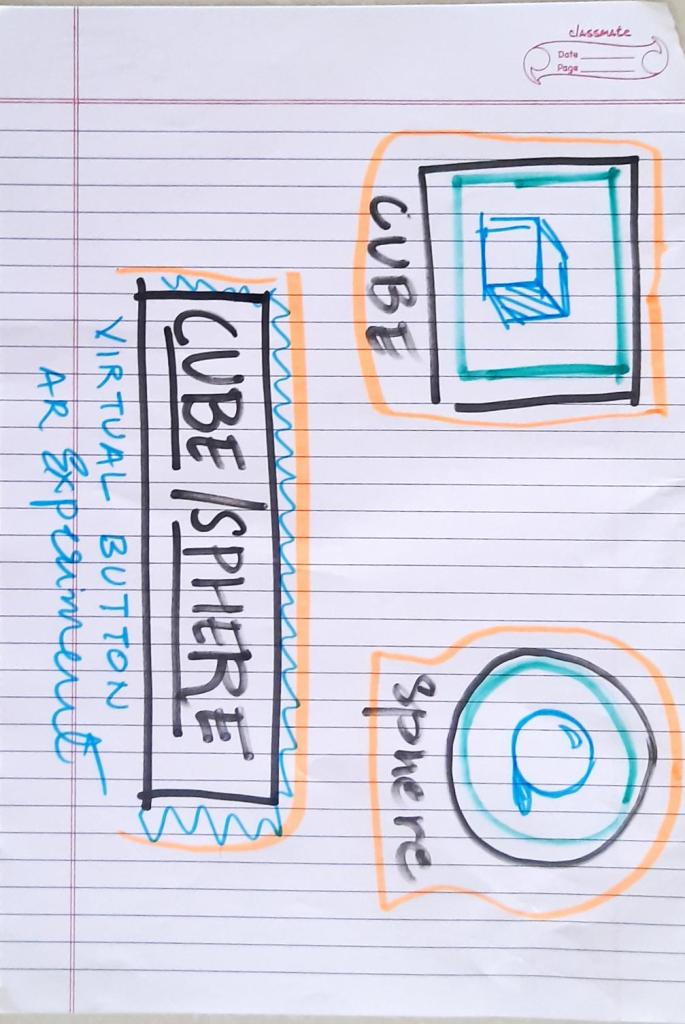 classmate
Date
Page
CUBE
sphere
CUBE/SPHERE
VIRTUAL BUTTON
AR Expriment